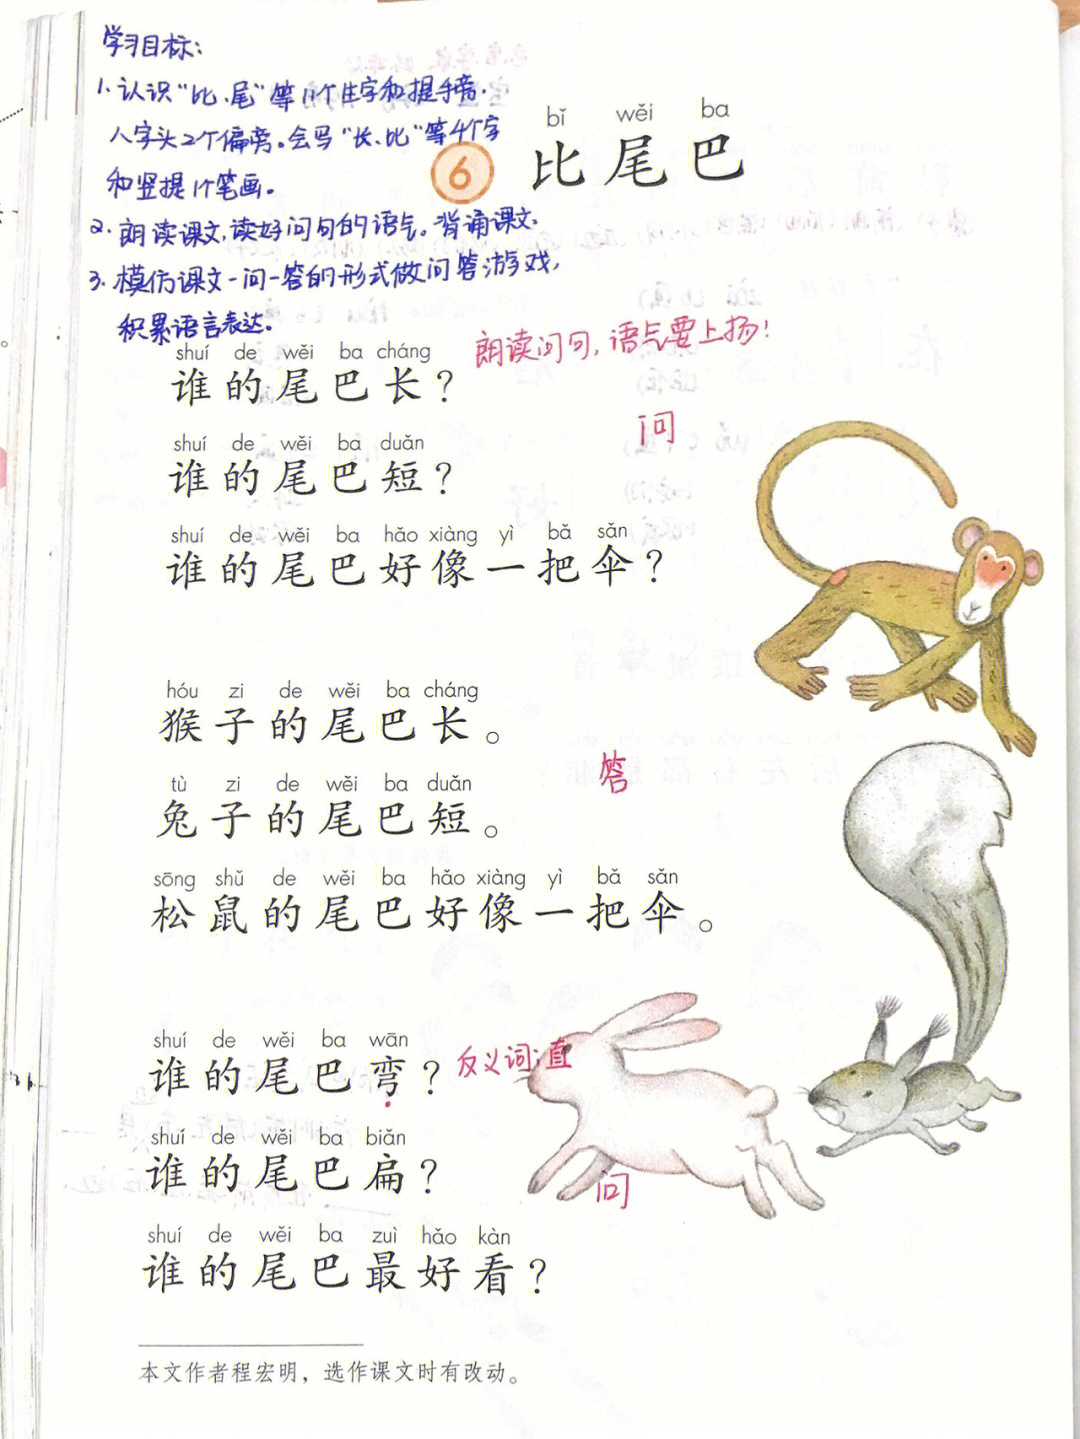 学习目标：
1.认识“比、尾”等11个生字和提手旁、
人字头2个偏旁。会写“长、比”等4个字
和竖提1个笔画。
2.朗读课文，读好问句的语气。背诵课文。
3.模仿课文一问一答的形式做问答游戏，
积累语言表达。
bǐ wěi ba
6 比尾巴
朗读问句，语气要上扬！
shuí de wěi ba cháng
谁的尾巴长？
问
shuí de wěi ba duǎn
谁的尾巴短？
shuí de wěi ba hǎo xiàng yì bǎ sǎn
谁的尾巴好像一把伞？
hóu zi de wěi ba cháng
猴子的尾巴长。
答
tù zi de wěi ba duǎn
兔子的尾巴短。
sōng shǔ de wěi ba hǎo xiàng yì bǎ sǎn
松鼠的尾巴好像一把伞。
shuí de wěi ba wān
谁的尾巴弯？ 反义词：直
shuí de wěi ba biǎn
谁的尾巴扁？
问
shuí de wěi ba zuì hǎo kàn
谁的尾巴最好看？
本文作者程宏明，选作课文时有改动。